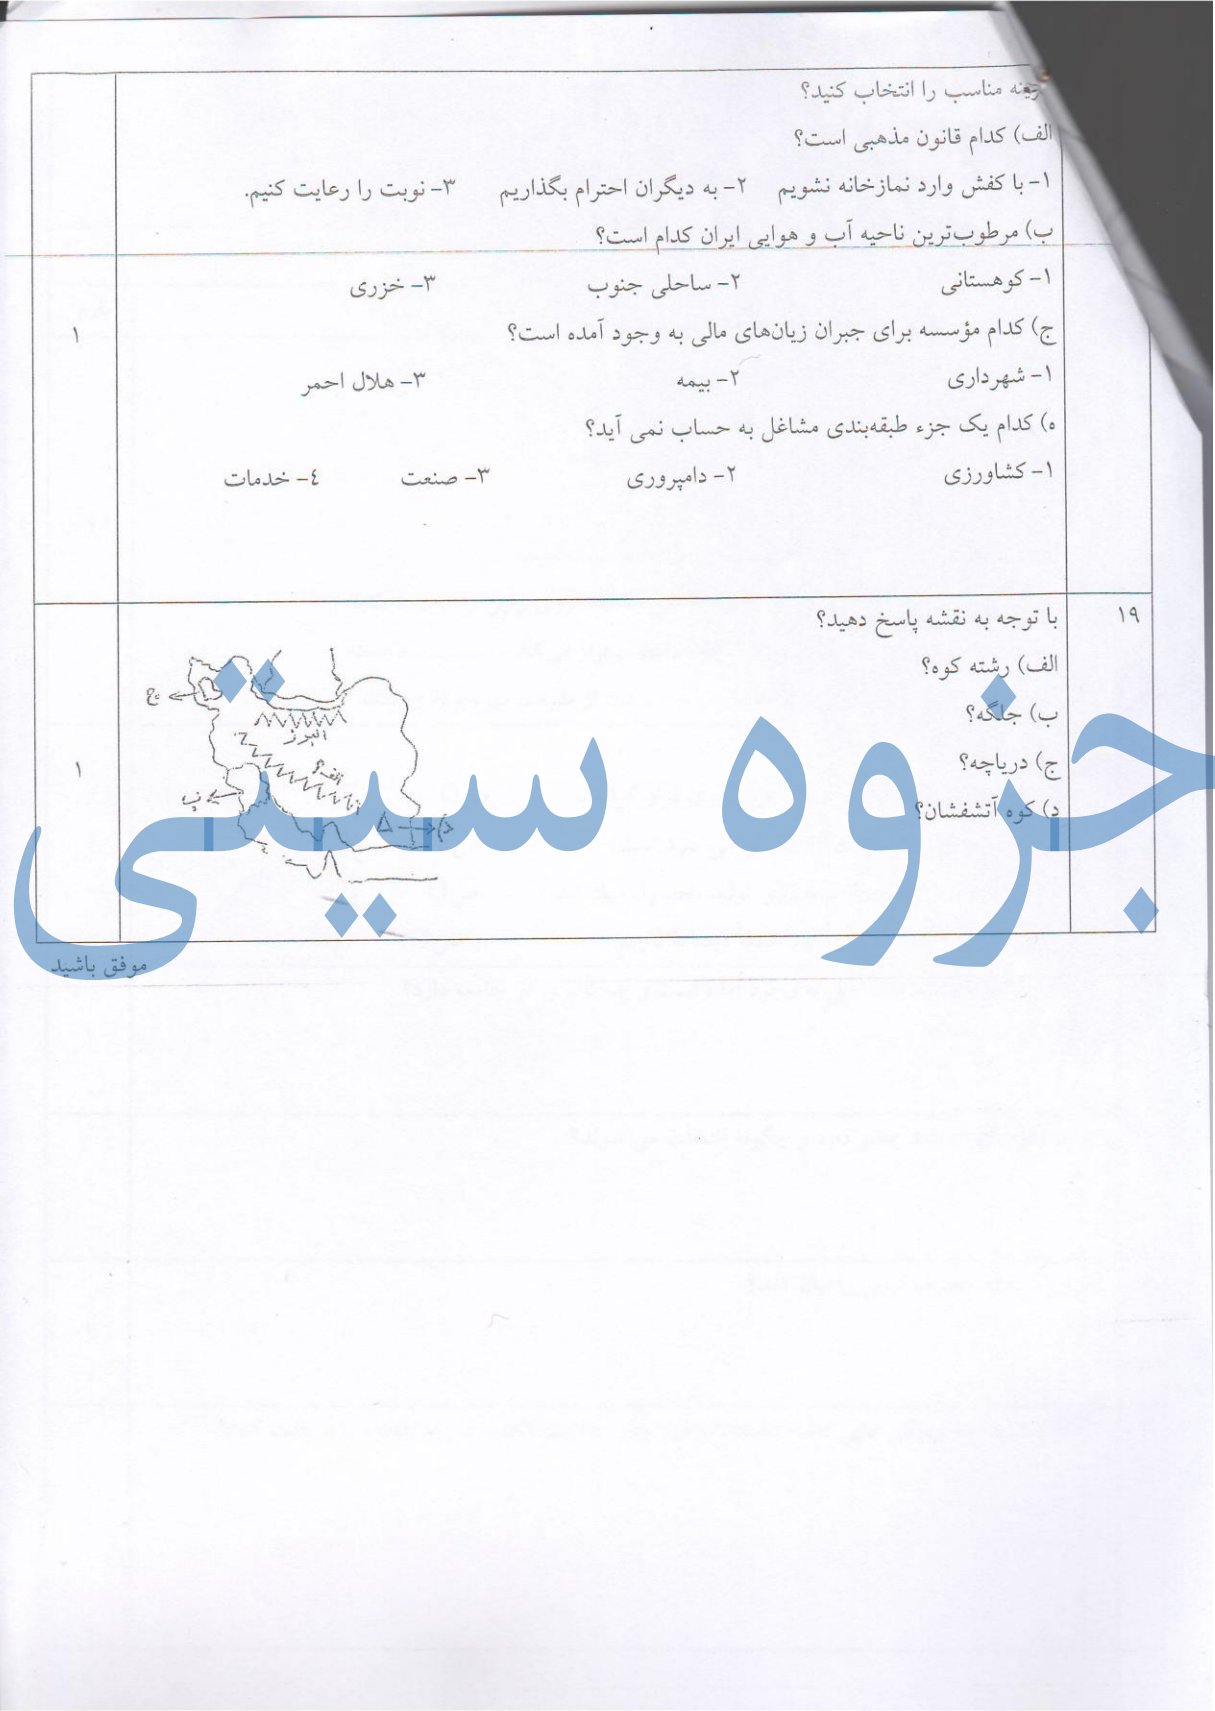 مناسب را انتخاب کنید؟
الف) کدام قانون مذهبی است؟
۱- با کفش وارد نمازخانه نشویم ۲- به دیگران احترام بگذاریم ۳- نوبت را رعایت کنیم.
ب) مرطوب‌ترین ناحیه آب و هوایی ایران کدام است؟
۱- کوهستانی ۲- ساحلی جنوب ۳- خزری
ج) کدام مؤسسه برای جبران زیان‌های مالی به وجود آمده است؟
۱
۱- شهرداری ۲- بیمه ۳- هلال احمر
ه) کدام یک جزء طبقه‌بندی مشاغل به حساب نمی آید؟
۱- کشاورزی ۲- دامپروری ۳- صنعت ٤- خدمات
۱۹
با توجه به نقشه پاسخ دهید؟
الف) رشته کوه؟
ب) جلگه؟
ج) دریاچه؟
د) کوه آتشفشان؟
۱
ج
البرز
الف؟
ب
د
جزوه سیتی
موفق باشید